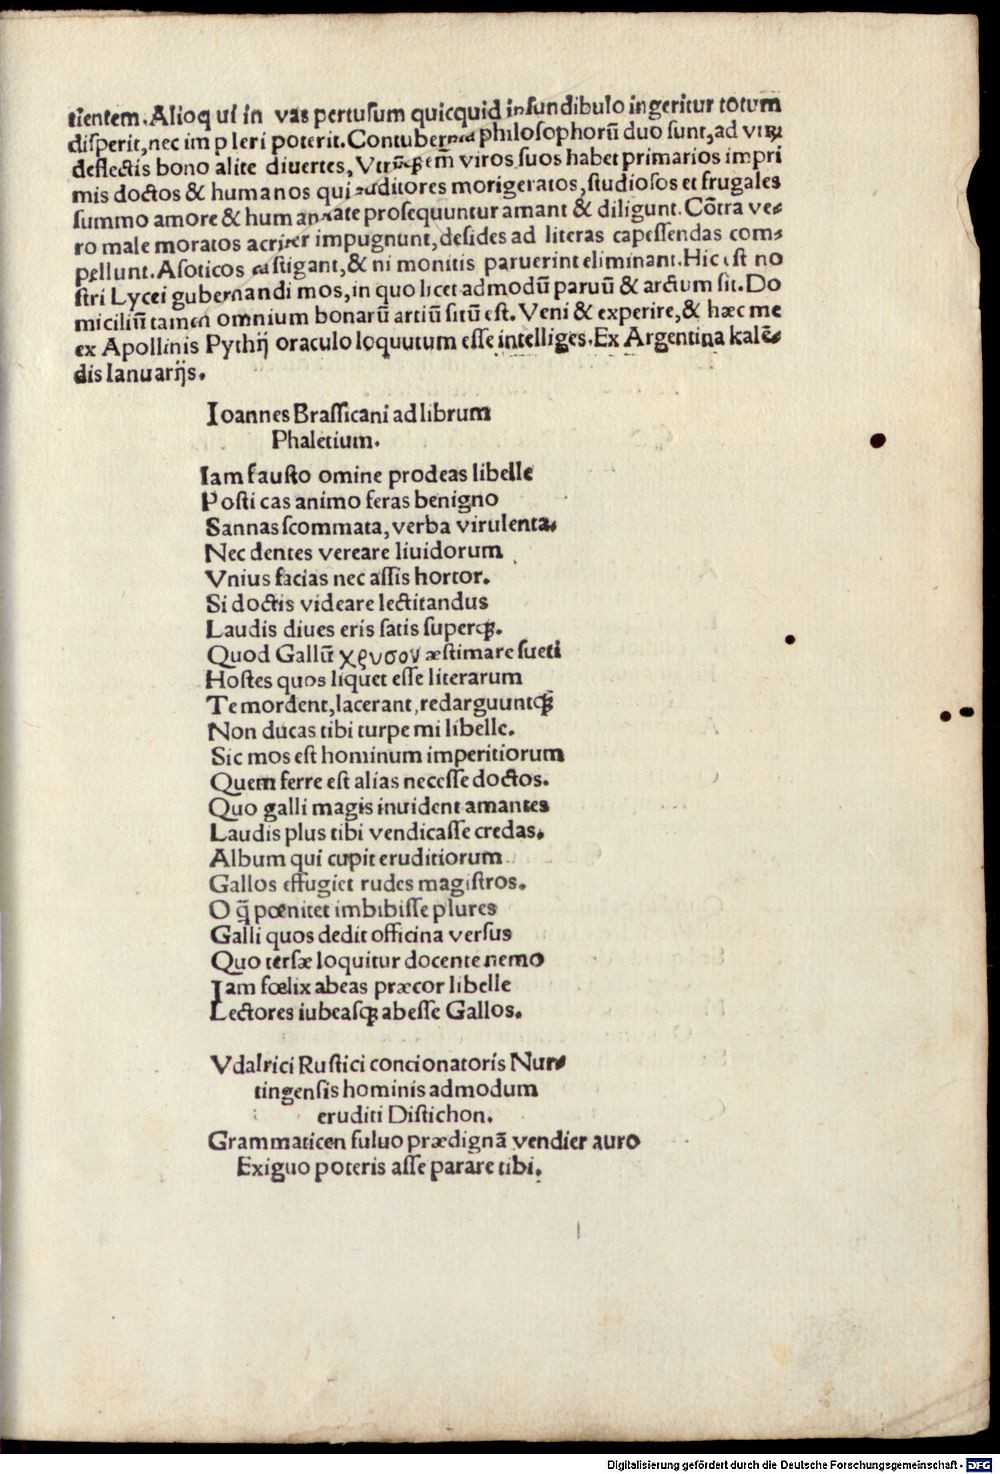 tientem. Alioq ui in vas pertusum quicquid insundibulo ingeritur totum
disperit, nec im p leri poterit. Contubernia philosophorū duo sunt, ad
deflectis bono alite diuertes, Vtrūqꝫ em̄ viros suos habet primarios impri
mis doctos & humanos qui auditores morigeratos, studiosos et frugales
summo amore & humanitate prosequuntur amant & diligunt. Cōtra ve⸗
ro male moratos acriter impugnunt, desides ad literas capessendas com⸗
pellunt. Asoticos castigant, & ni monitis paruerint eliminant. Hic est no
stri Lycei gubernandi mos, in quo licet admodū paruū & arctum sit. Do
miciliū tamen omnium bonarū artiū sitū est. Veni & experire, & hæc me
ex Apollinis Pythij oraculo loquutum esse intelliges. Ex Argentina kalē⸗
dis Ianuarijs.
Ioannes Brassicani ad librum
Phaletium.
Iam fausto omine prodeas libelle
Posti cas animo feras benigno
Sannas scommata, verba virulenta⸗
Nec dentes vereare liuidorum
Vnius facias nec assis hortor.
Si doctis videare lectitandus
Laudis diues eris satis superqꝫ.
Quod Gallū χρυσον æstimare sueti
Hostes quos liquet esse literarum
Te mordent, lacerant, redarguuntqꝫ
Non ducas tibi turpe mi libelle.
Sic mos est hominum imperitiorum
Quem ferre est alias necesse doctos.
Quo galli magis inuident amantes
Laudis plus tibi vendicasse credas.
Album qui cupit eruditiorum
Gallos effugiet rudes magistros.
O q̄ pœnitet imbibisse plures
Galli quos dedit officina versus
Quo tersæ loquitur docente nemo
Iam fœlix abeas præcor libelle
Lectores iubeasqꝫ abesse Gallos.
Vdalrici Rustici concionatoris Nur⸗
tingensis hominis admodum
eruditi Distichon.
Grammaticen fuluo prædignā vendier auro
Exiguo poteris asse parare tibi.
Digitalisierung gefördert durch die Deutsche Forschungsgemeinschaft - DFG